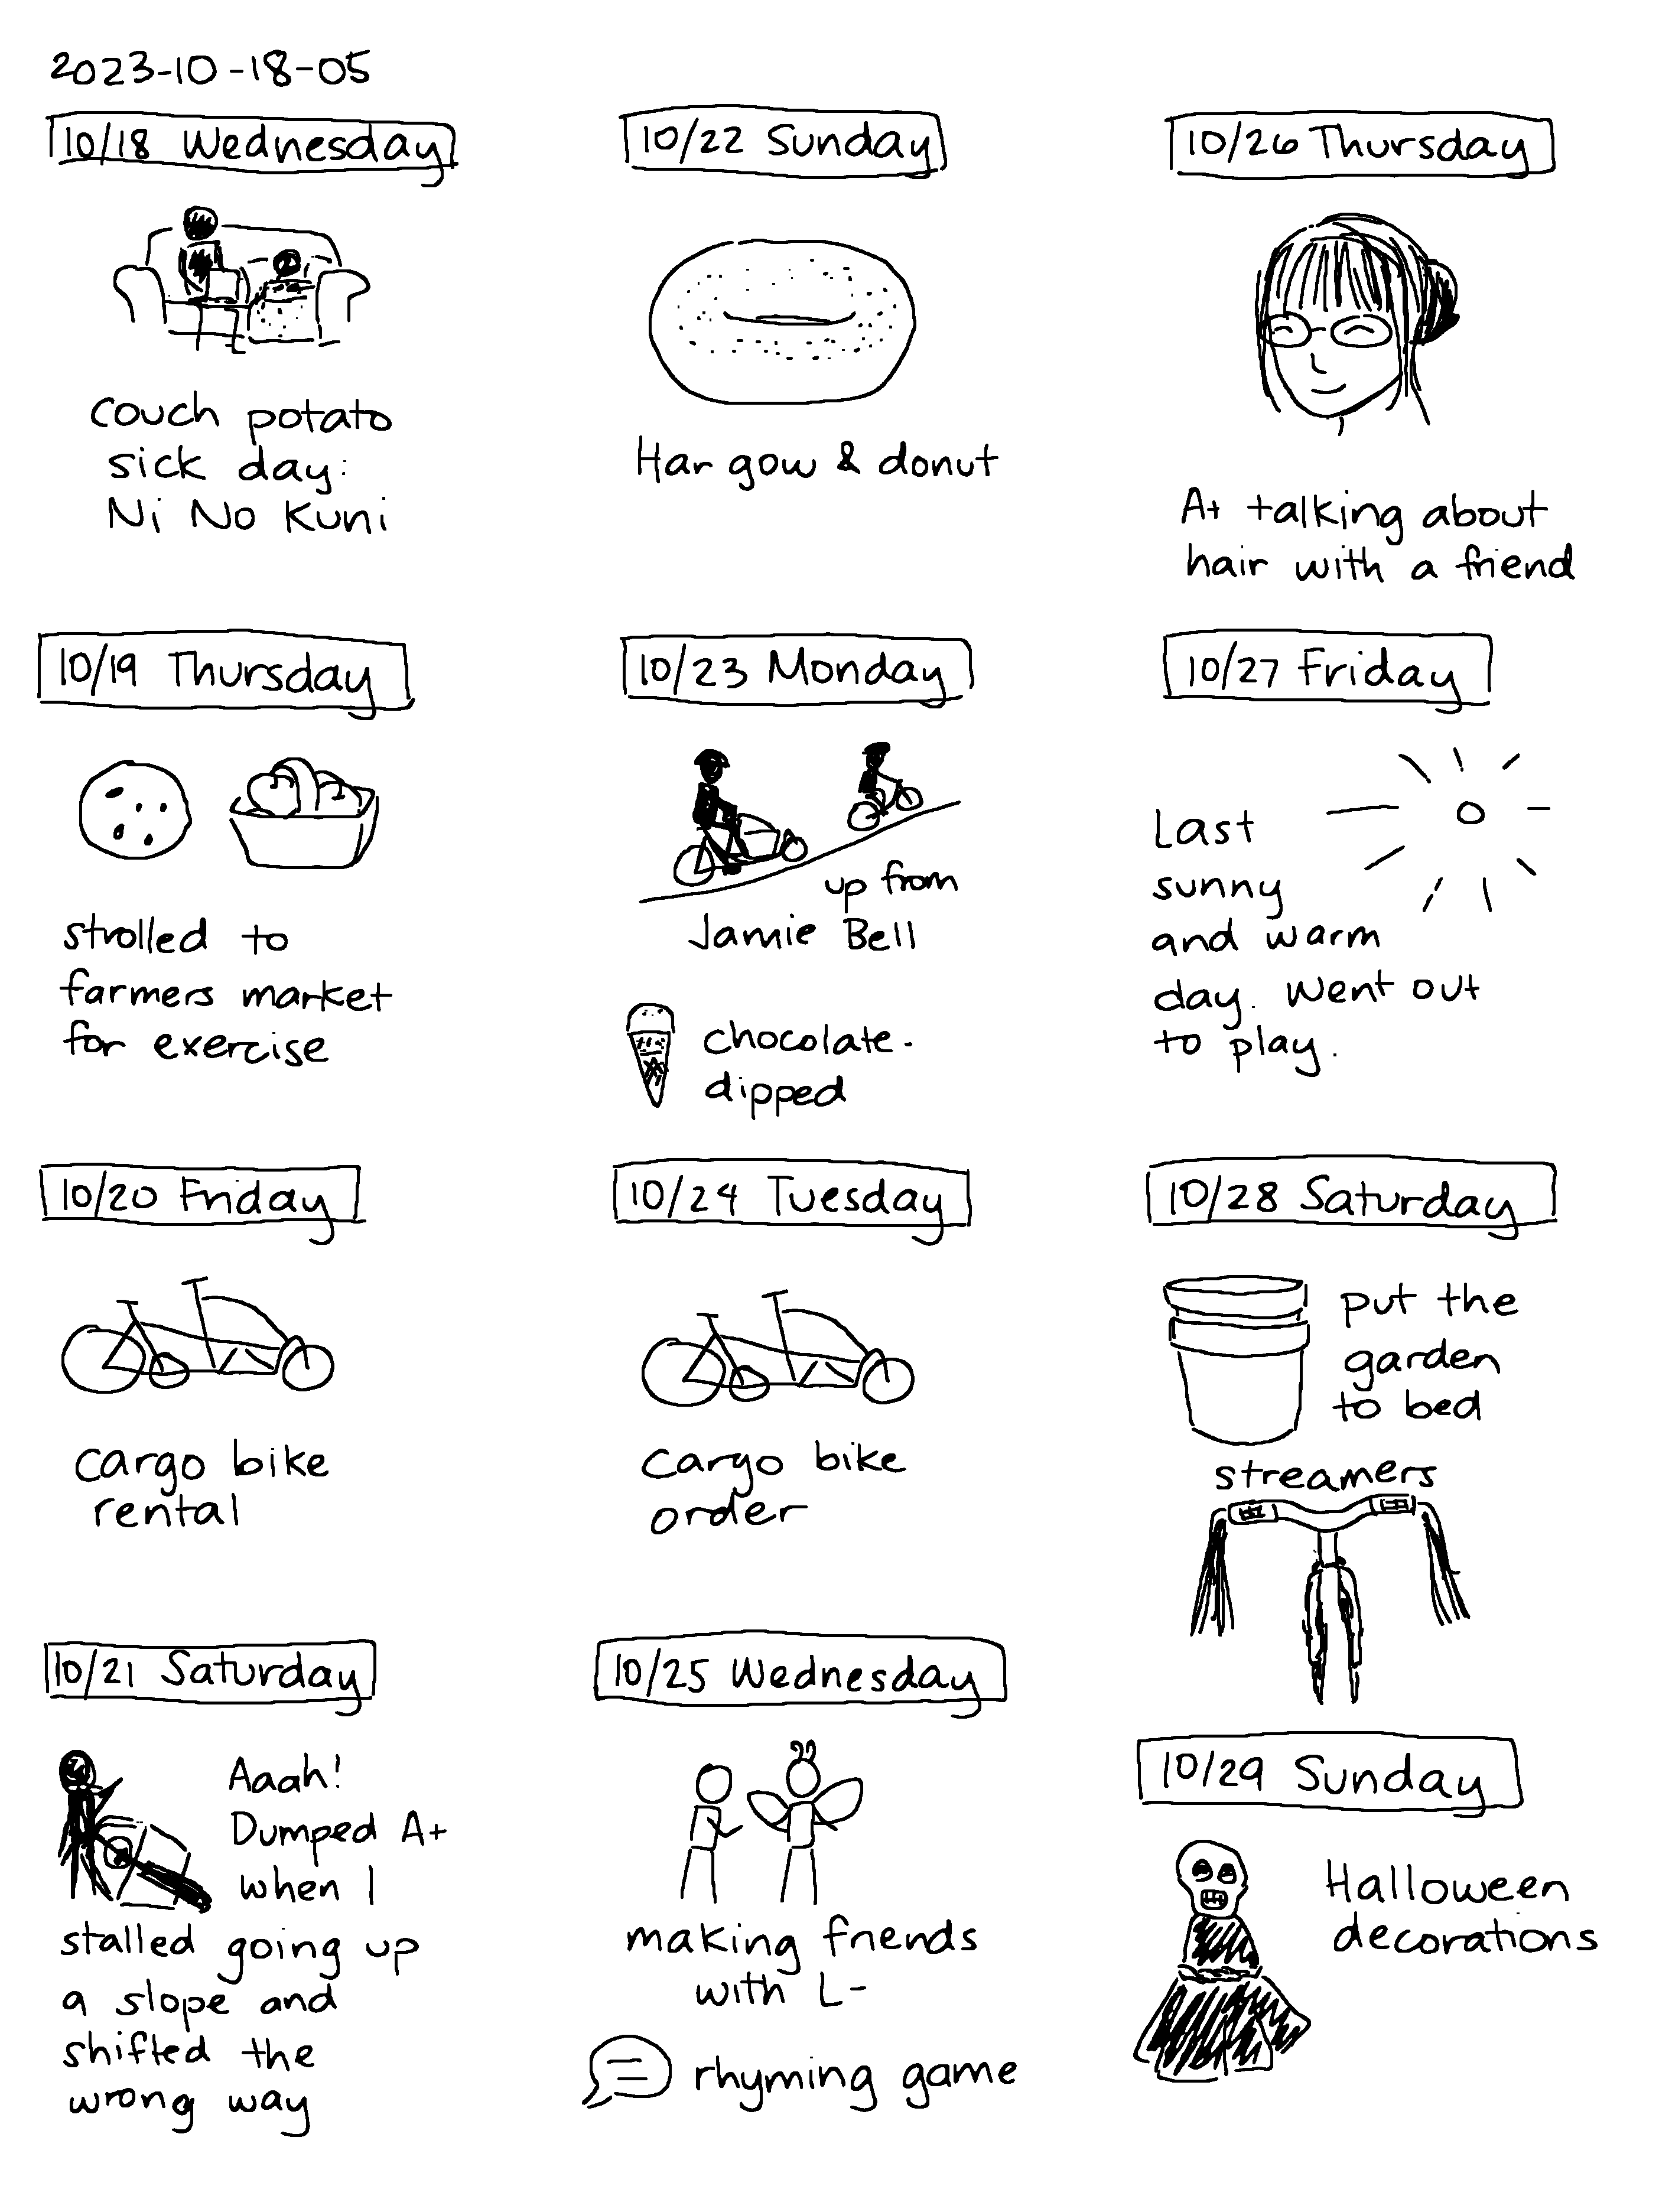 2023-10-18-05
10/18 Wednesday
couch potato
sick day:
Ni No Kuni
10/19 Thursday
strolled to
farmers market
for exercise
10/20 Friday
cargo bike
rental
10/21 Saturday
Aaah!
Dumped A+
when I
stalled going up
a slope and
shifted the
wrong way
10/22 Sunday
Har gow & donut
10/23 Monday
up from
Jamie Bell
chocolate-
dipped
10/24 Tuesday
cargo bike
order
10/25 Wednesday
making friends
with L-
rhyming game
10/26 Thursday
A+ talking about
hair with a friend
10/27 Friday
Last
sunny
and warm
day. Went out
to play.
10/28 Saturday
put the
garden
to bed
streamers
10/29 Sunday
Halloween
decorations